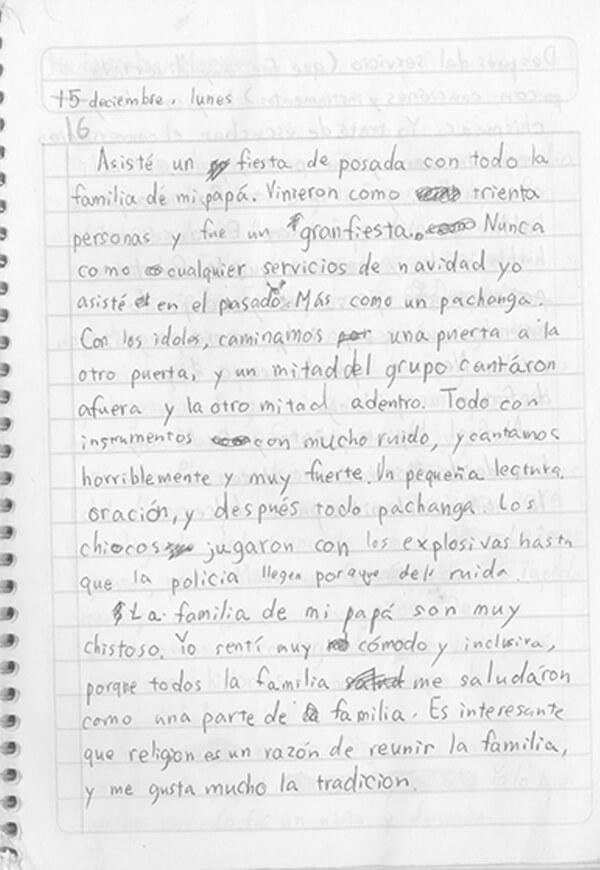 15 deciembre, lunes
16
Asisté un fiesta de posada con todo la
familia de mi papá. Vinieron como trienta
personas y fue un gran fiesta. Nunca
como cualquier servicios de navidad yo
asisté en el pasado. Más como un pachanga.
Con los idolos, caminamos una puerta a la
otro puerta, y un mitad del grupo cantáron
afuera y la otro mitad adentro. Todo con
instrumentos con mucho ruido, y cantamos
horriblemente y muy fuerte. Un pequeña lectura,
oración, y después todo pachanga. Los
chicos jugaron con los explosivas hasta
que la policia llegen porque del ruida.
La familia de mi papá son muy
chistoso. Yo sentí muy cómodo y inclusiva,
porque todos la familia me saludáron
como una parte de familia. Es interesante
que religion es un razón de reunir la familia,
y me gusta mucho la tradicion.